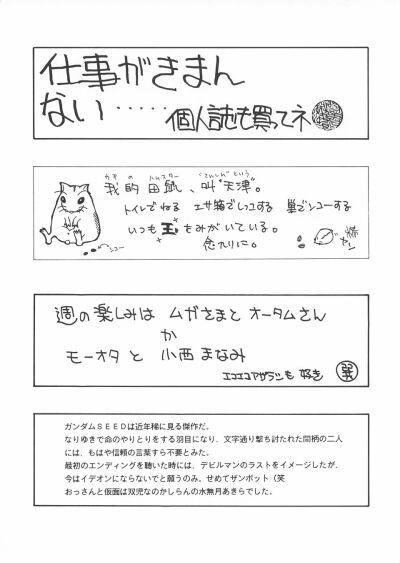 仕事がきまん
ない‥‥‥個人誌も買ってネ
我的田鼠、叫"天津"。
トイレでねる エサ箱でしっこする 巣でシューする
いつも玉をみがいている。
念入りに。
シュー
週の楽しみは ムガさまと オータムさん
か
モーオタと 小西まなみ
エコエコアザラシも 好き
ガンダムSEEDは近年稀に見る傑作だ。
なりゆきで命のやりとりをする羽目になり、文字通り撃ち討たれた間柄の二人
には、もはや信頼の言葉すら不要とみた。
最初のエンディングを聴いた時には、デビルマンのラストをイメージしたが、
今はイデオンにならないでと願うのみ。せめてザンボット（笑
おっさんと仮面は双児なのかしらんの水無月あきらでした。